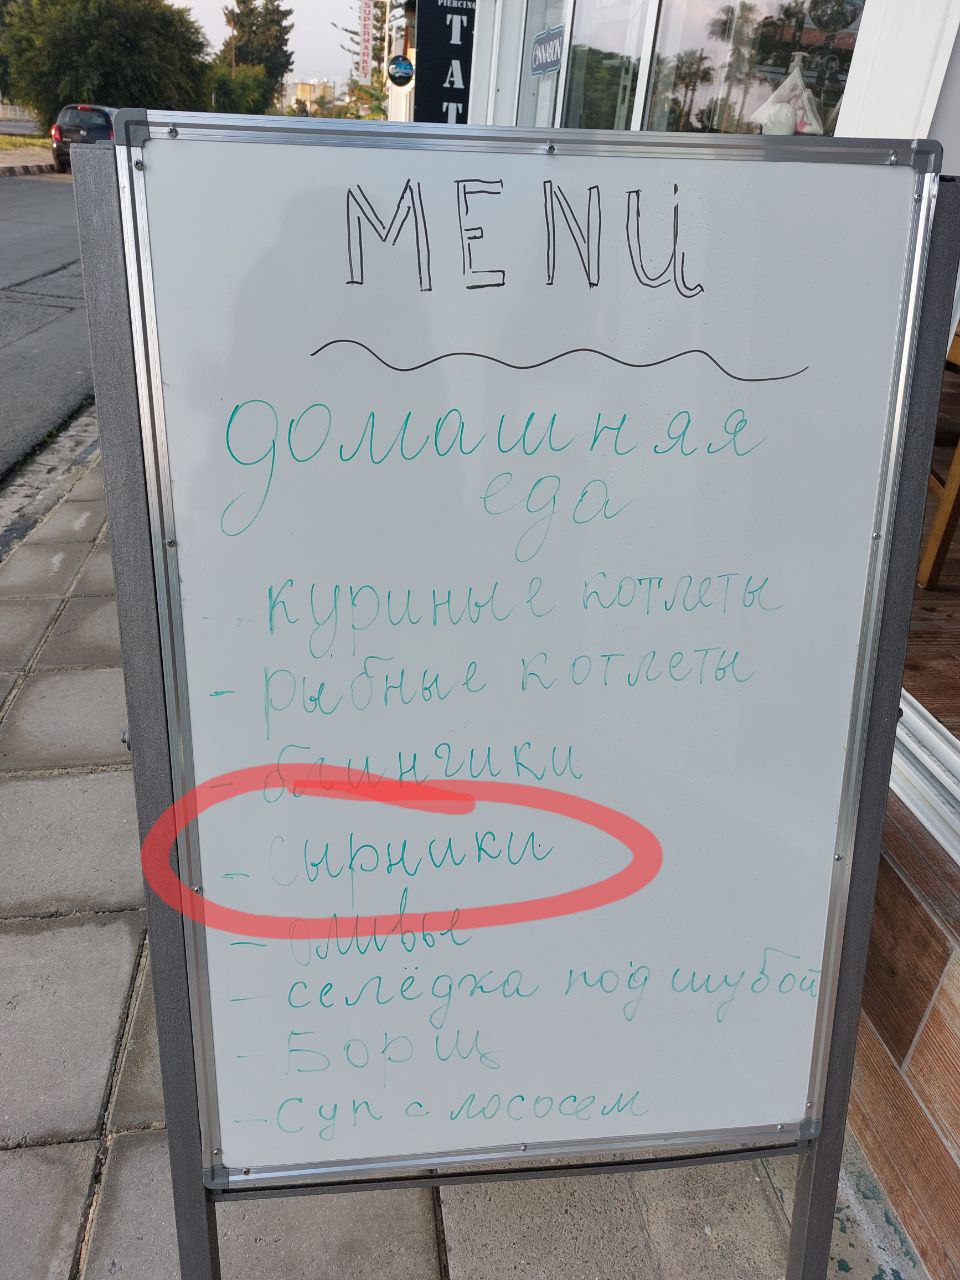 SUPERMARKET
PIERCING
TAT
CINNABON
MENU
домашняя
еда
- куриные котлеты
- рыбные котлеты
- блинчики
- сырники
- оливье
- селёдка под шубой
- Борщ
- Суп с лососем